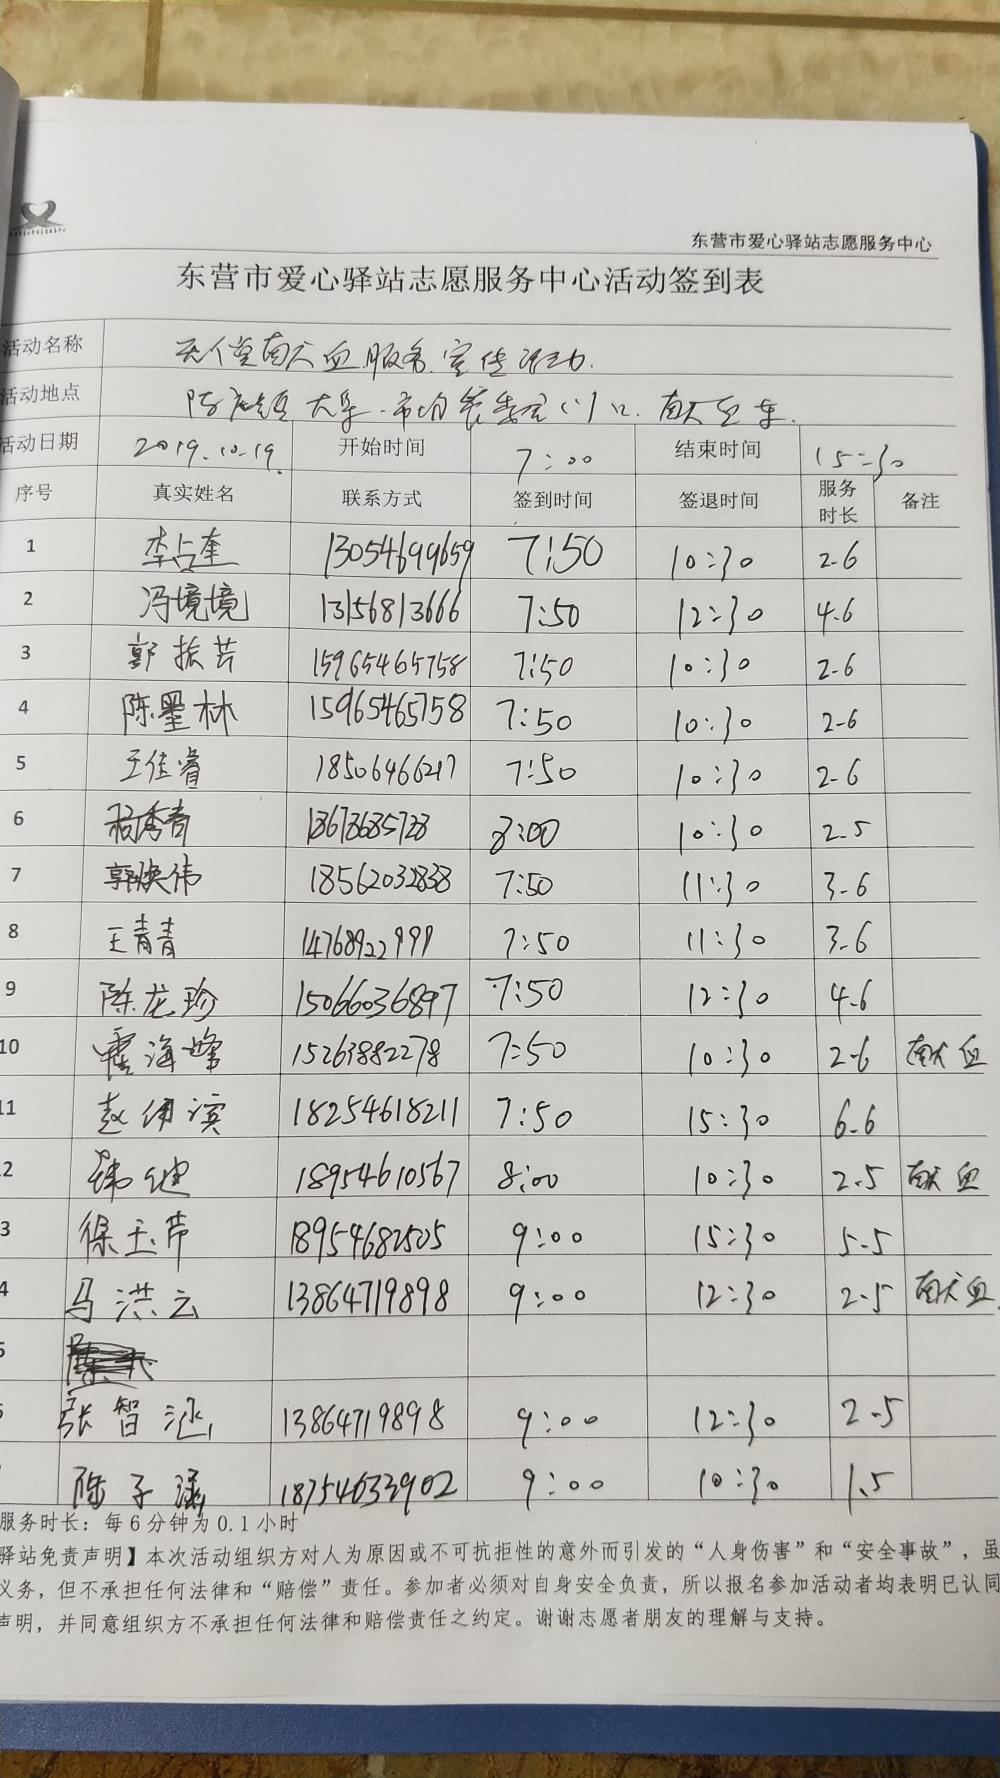 东营市爱心驿站志愿服务中心
东营市爱心驿站志愿服务中心活动签到表
活动名称 无偿献血服务.宣传活动.
活动地点 陈庄镇大集.市场 门口.献血车.
活动日期 2019.10.19. 开始时间 7:00 结束时间 15:30
序号 真实姓名 联系方式 签到时间 签退时间 服务时长 备注
1 李占奎 13054699659 7:50 10:30 2.6
2 冯境境 13156813666 7:50 12:30 4.6
3 郭振芸 15965465758 7:50 10:30 2.6
4 陈墨林 15965465758 7:50 10:30 2.6
5 王佳睿 18506466217 7:50 10:30 2.6
6 杨秀青 13673635723 8:00 10:30 2.5
7 郭焕伟 18562032838 7:50 11:30 3.6
8 王青青 14768922999 7:50 11:30 3.6
9 陈龙珍 15066036897 7:50 12:30 4.6
10 霍海峰 15263882278 7:50 10:30 2.6 献血
11 赵伟滨 18254618211 7:50 15:30 6.6
2 韩健 18954610567 8:00 10:30 2.5 献血
3 徐玉芹 18954682505 9:00 15:30 5.5
4 马洪云 13864719898 9:00 12:30 2.5 献血.
5
6 张智涵 13864719898 9:00 12:30 2.5
陈子涵 18754633902 9:00 10:30 1.5
服务时长：每6分钟为0.1小时
驿站免责声明】本次活动组织方对人为原因或不可抗拒性的意外而引发的“人身伤害”和“安全事故”，虽
义务，但不承担任何法律和“赔偿”责任。参加者必须对自身安全负责，所以报名参加活动者均表明已认同
声明，并同意组织方不承担任何法律和赔偿责任之约定。谢谢志愿者朋友的理解与支持。